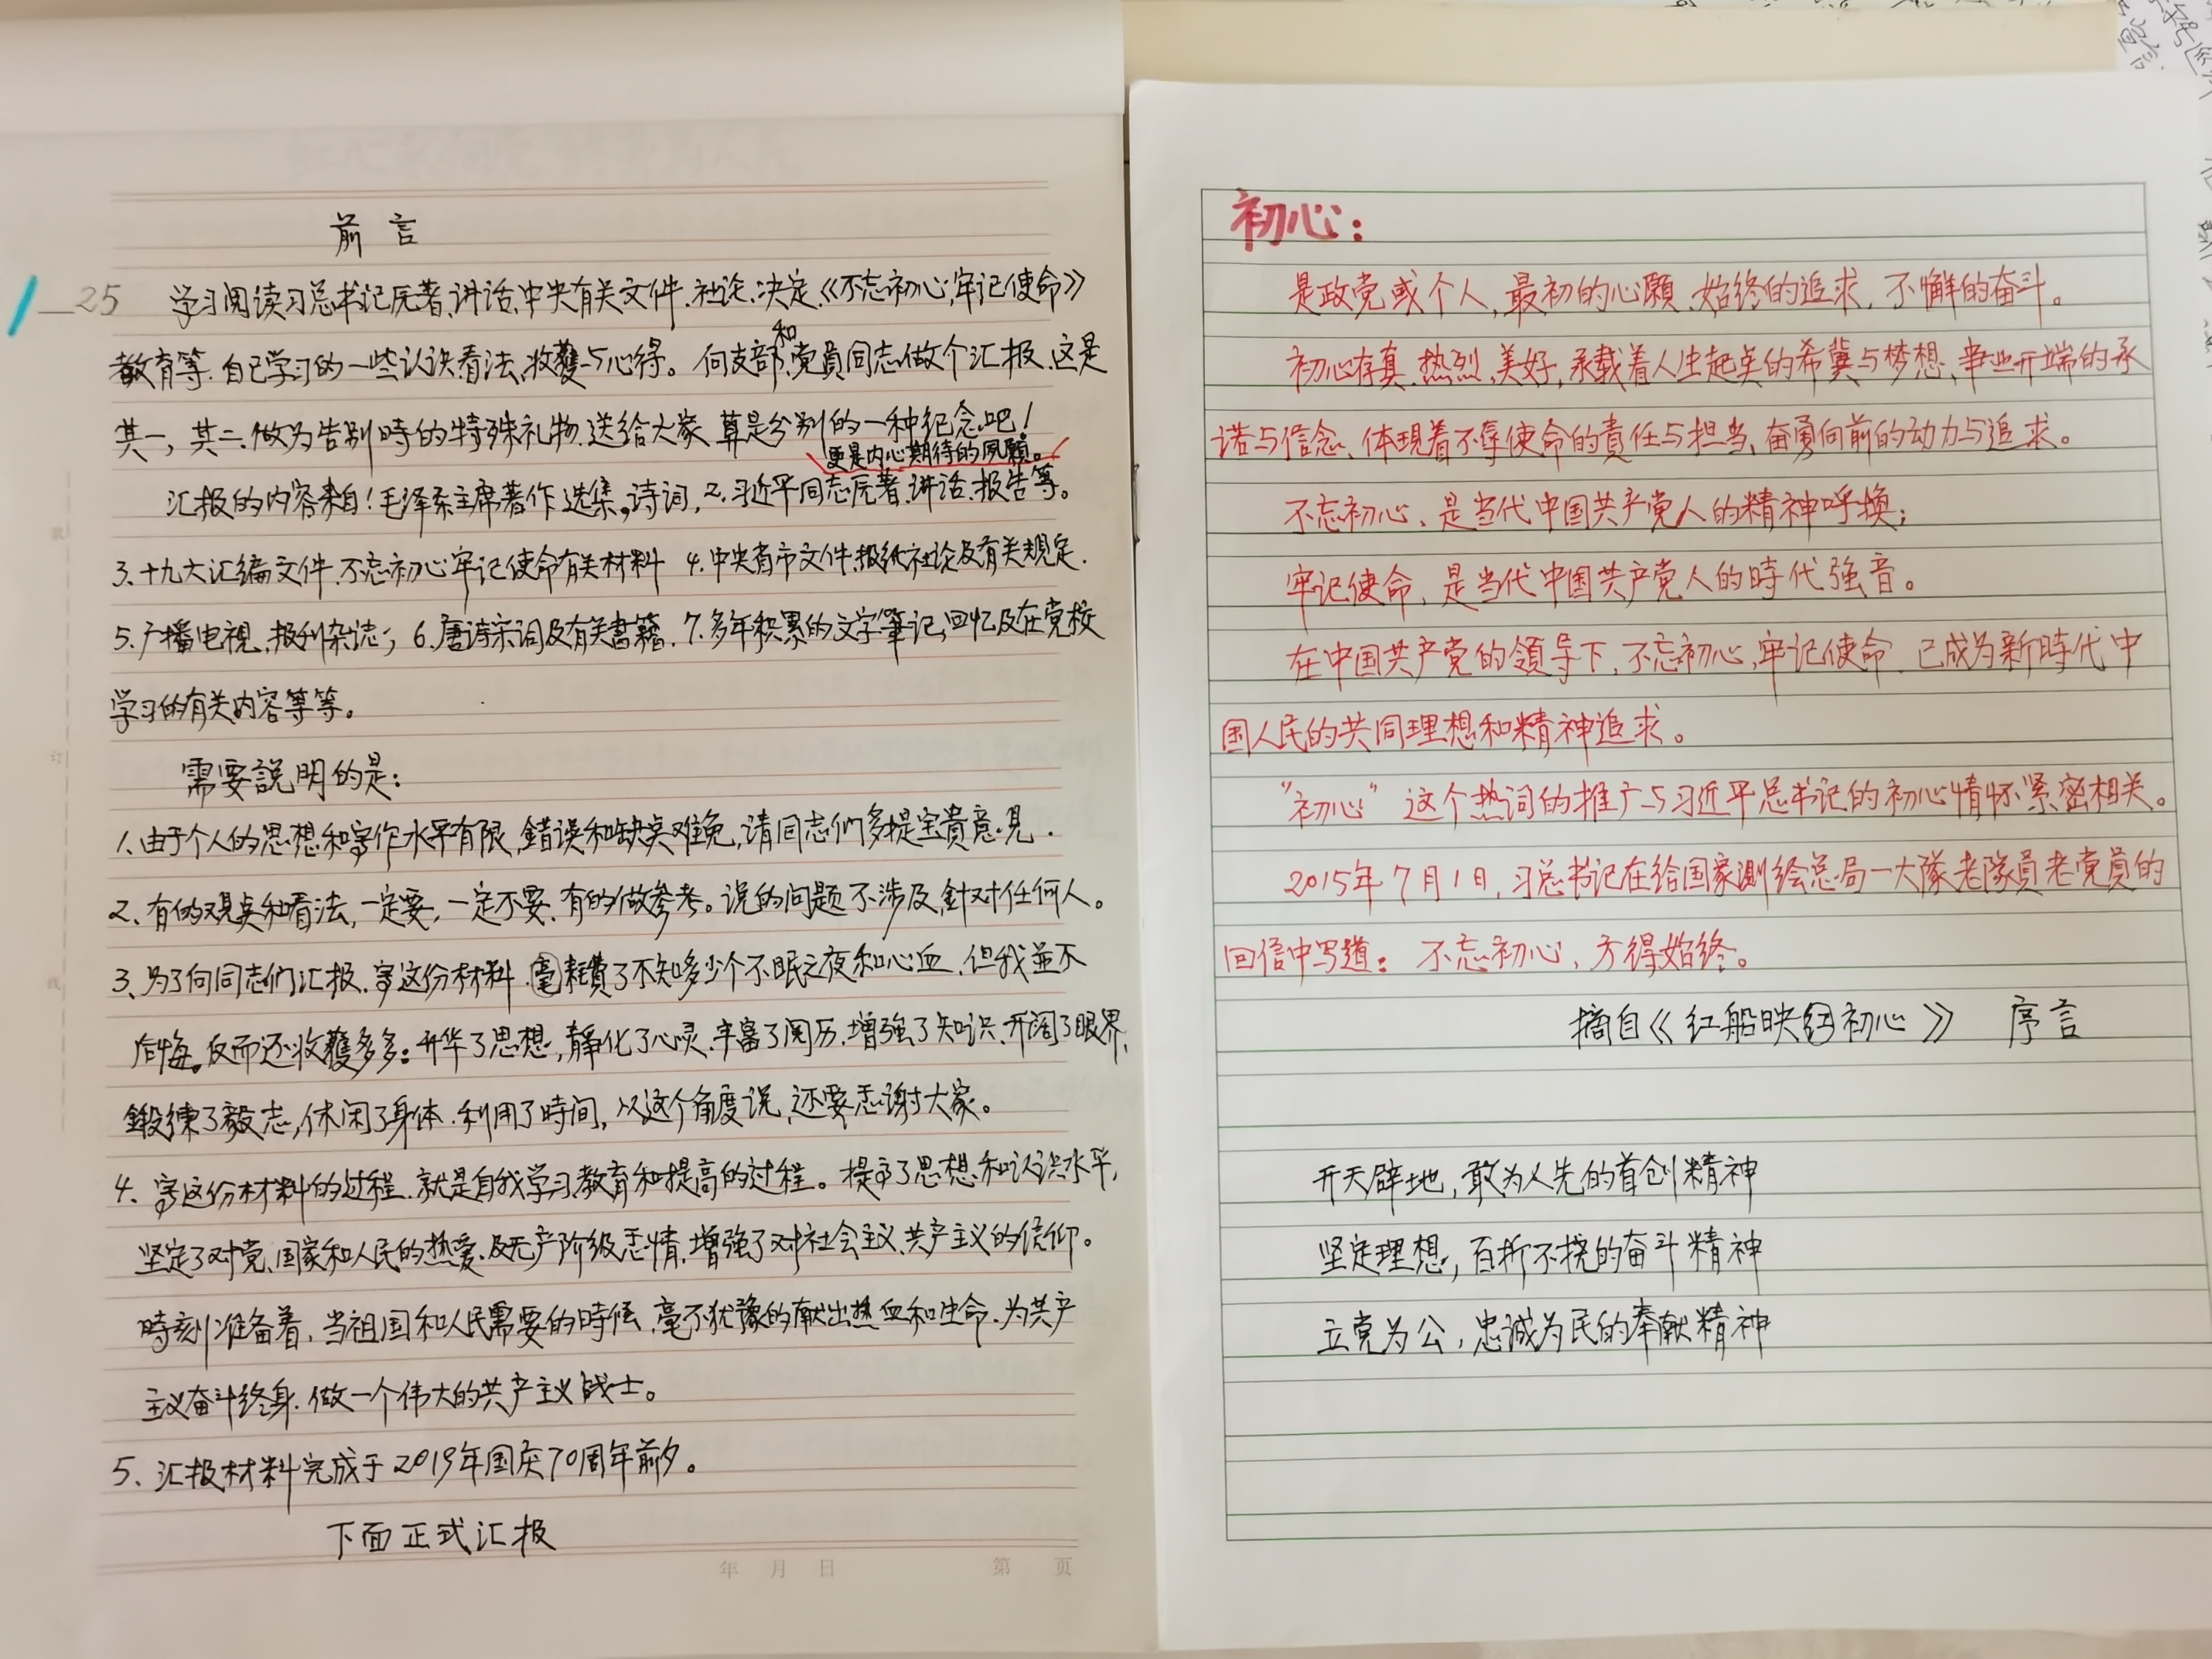 前言
25 学习阅读习总书记原著、讲话、中央有关文件、社论、决定、《不忘初心,牢记使命》
教育等。自己学习的一些认识看法、收獲与心得。向支部和党員同志做个汇报、这是
其一，其二、做为告别時的特殊礼物、送给大家、算是分别的一种纪念吧！
更是内心期待的夙願。
汇报的内容来自1毛泽东主席著作、选集。诗词，2.习近平同志原著、讲话、报告等。
3、十九大汇编文件、不忘初心牢记使命有关材料 4.中央省市文件、报纸社论及有关規定.
5.广播电视、报刊杂志； 6.唐诗宋词及有关書籍. 7.多年积累的文字筆记、回忆及在党校
学习的有关内容等等。
需要説明的是：
1、由于个人的思想和写作水平有限、錯误和缺点难免,请同志们多提宝貴意見.
2、有的观点和看法，一定要，一定不要、有的做参考。说的问题不涉及，針对任何人。
3、为了向同志们汇报、写这份材料、耗費了不知多少个不眠之夜和心血、但我並不
后悔。反而还收獲多多：升华了思想，静化了心灵、丰富了阅历、增强了知识、开阔了眼界、
鍛練了毅志，休闲了身体、利用了時间，从这个角度说，还要感谢大家。
4、写这份材料的过程、就是自我学习、教育和提高的过程。提高了思想和认识水平，
坚定了对党、国家和人民的热爱、及无产阶级感情、增强了对社会主义、共产主义的信仰。
時刻准备着、当祖国和人民需要的時候、毫不犹豫的献出热血和生命、为共产
主义奋斗终身、做一个伟大的共产主义战士。
5、汇报材料完成于2019年国庆70周年前夕。
下面正式汇报
年 月 日 第 页
装
订
线
初心：
是政党或个人，最初的心願、始终的追求，不懈的奋斗。
初心存真、热烈、美好，承载着人生起点的希冀与梦想、事业开端的承
诺与信念、体現着不辱使命的責任与担当、奋勇向前的动力与追求。
不忘初心、是当代中国共产党人的精神呼換；
牢记使命，是当代中国共产党人的時代强音。
在中国共产党的領导下，不忘初心,牢记使命、已成为新時代中
国人民的共同理想和精神追求。
“初心”这个热词的推广与习近平总书记的初心情怀紧密相关。
2015年7月1日，习总书记在给国家測绘总局一大隊老隊員老党員的
回信中写道：不忘初心、方得始终。
摘自《红船映红初心》 序言
开天辟地，敢为人先的首创精神
坚定理想，百折不挠的奋斗精神
立党为公，忠诚为民的奉献精神